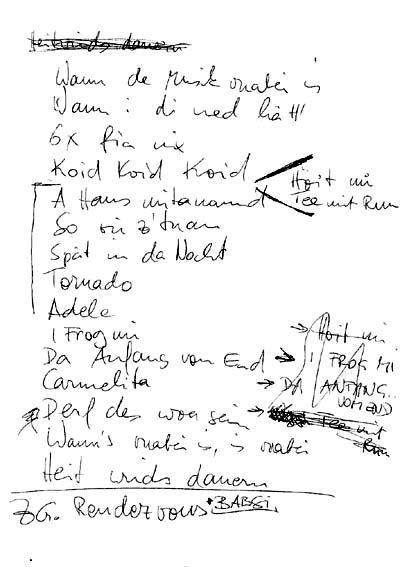 Heit wirds dauern
Wann de Musik vorbei is
Wann i di ned hätt'
6x fia nix
Koid Koid Koid
Hoit mi
Tee mit Rum
A Haus mitanand
So vü z'tuan
Spät in da Nocht
Tornado
Adele
I Frog mi
Hoit mi
Da Anfang vom End
I FROG MI
Carmelita
DA ANFANG..
VOM END
Derf des woa sein
Tee mit
Rum
Wann's vorbei is, is vorbei
Heit wirds dauern
ZG. Rendezvous BABSI.